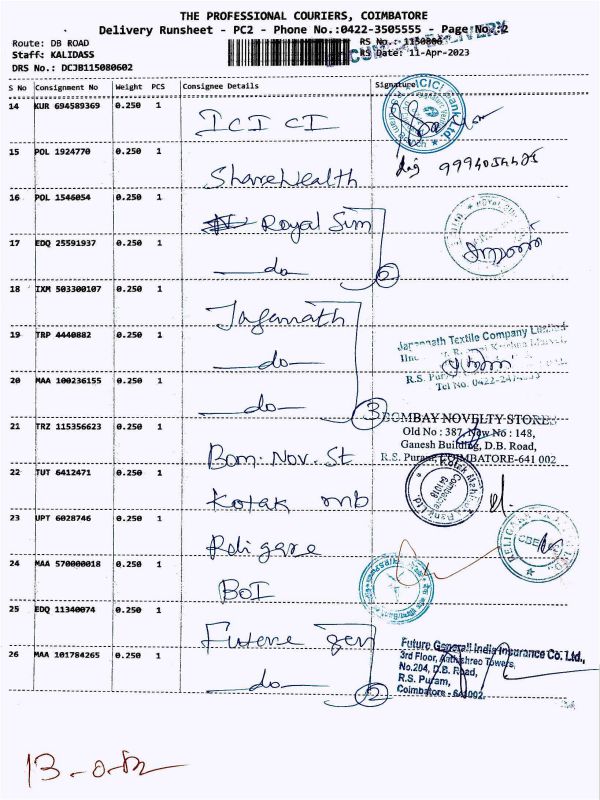 THE PROFESSIONAL COURIERS, COIMBATORE
Delivery Runsheet - PC2 - Phone No.:0422-3505555 - Page No.:2
Route: DB ROAD
RS No.: 1150806
Staff: KALIDASS
RS Date: 11-Apr-2023
DRS No.: DCJB115080602
S No Consignment No Weight PCS Consignee Details Signature
14 KUR 694589369 0.250 1
ICI CI
15 POL 1924770 0.250 1
ShareWealth
16 POL 1546054 0.250 1
Royal Sim
17 EDQ 25591937 0.250 1
do 2
18 IXM 503300107 0.250 1
Jagannath
19 TRP 4440882 0.250 1
Jagannath Textile Company Limited
do
20 MAA 100236155 0.250 1
R.S. Puram
Tel No. 0422-
do 3
21 TRZ 115356623 0.250 1
BOMBAY NOVELTY STORES
Old No : 387, New No : 148,
Ganesh Building, D.B. Road,
R.S. Puram, COIMBATORE-641 002
Bom. Nov. St
22 TUT 6412471 0.250 1
Kotak mb
23 UPT 6028746 0.250 1
Religare
24 MAA 570000018 0.250 1
BOI
25 EDQ 11340074 0.250 1
Future gen
26 MAA 101784265 0.250 1
Future Generali India Insurance Co. Ltd.,
3rd Floor, Towers,
No.204, D.B. Road,
R.S. Puram,
Coimbatore - 641002.
do 2